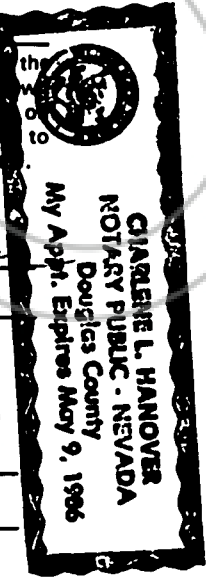 the
w
o
to
CHARLENE L. HANOVER
NOTARY PUBLIC - NEVADA
Douglas County
My Appt. Expires May 9, 1986